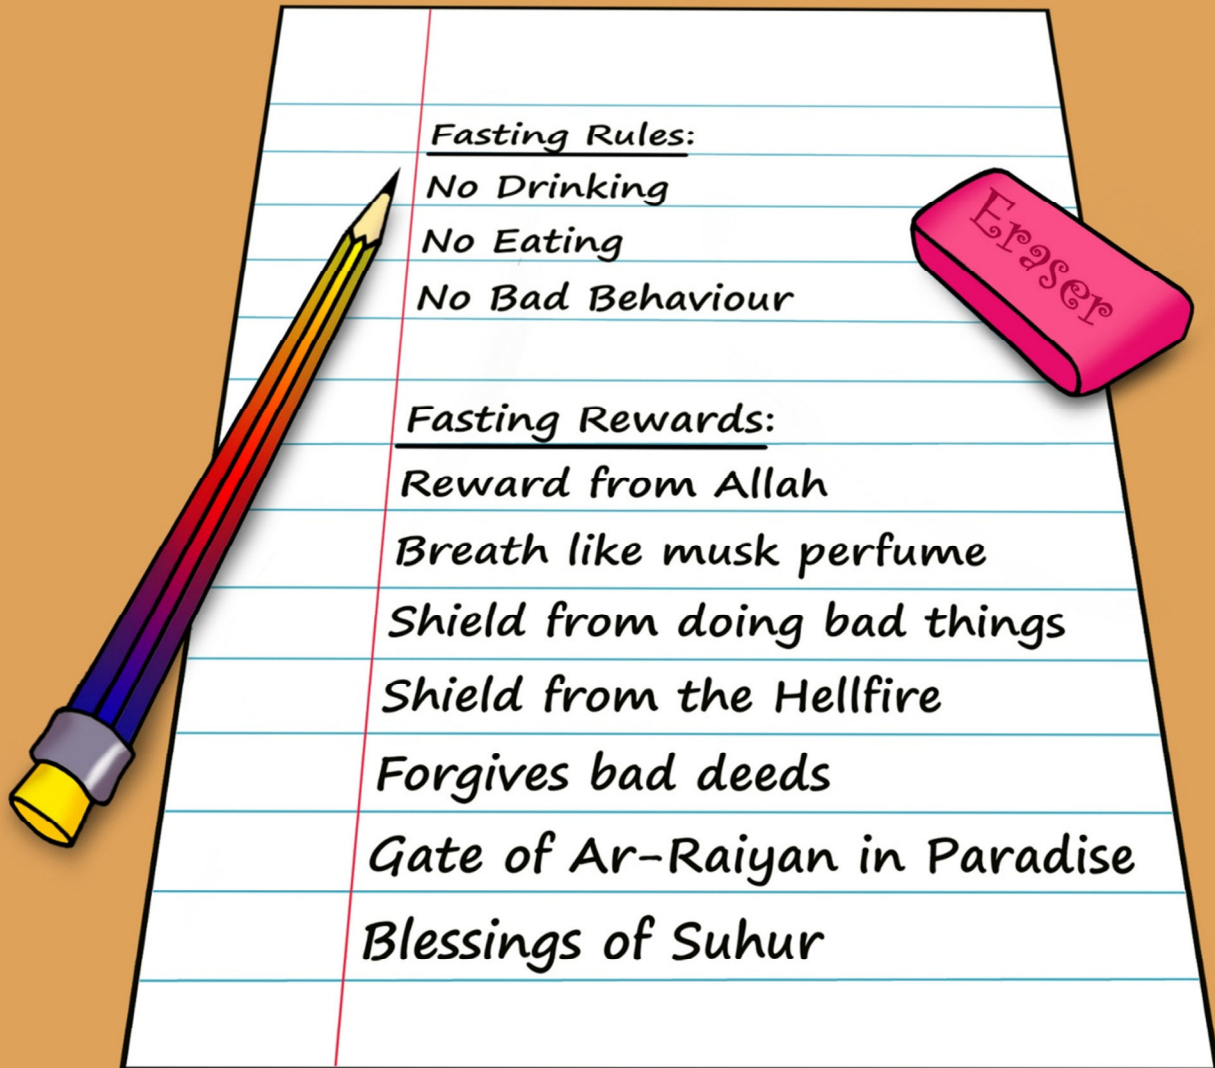 Fasting Rules:
No Drinking
No Eating
No Bad Behaviour
Eraser
Fasting Rewards:
Reward from Allah
Breath like musk perfume
Shield from doing bad things
Shield from the Hellfire
Forgives bad deeds
Gate of Ar-Raiyan in Paradise
Blessings of Suhur